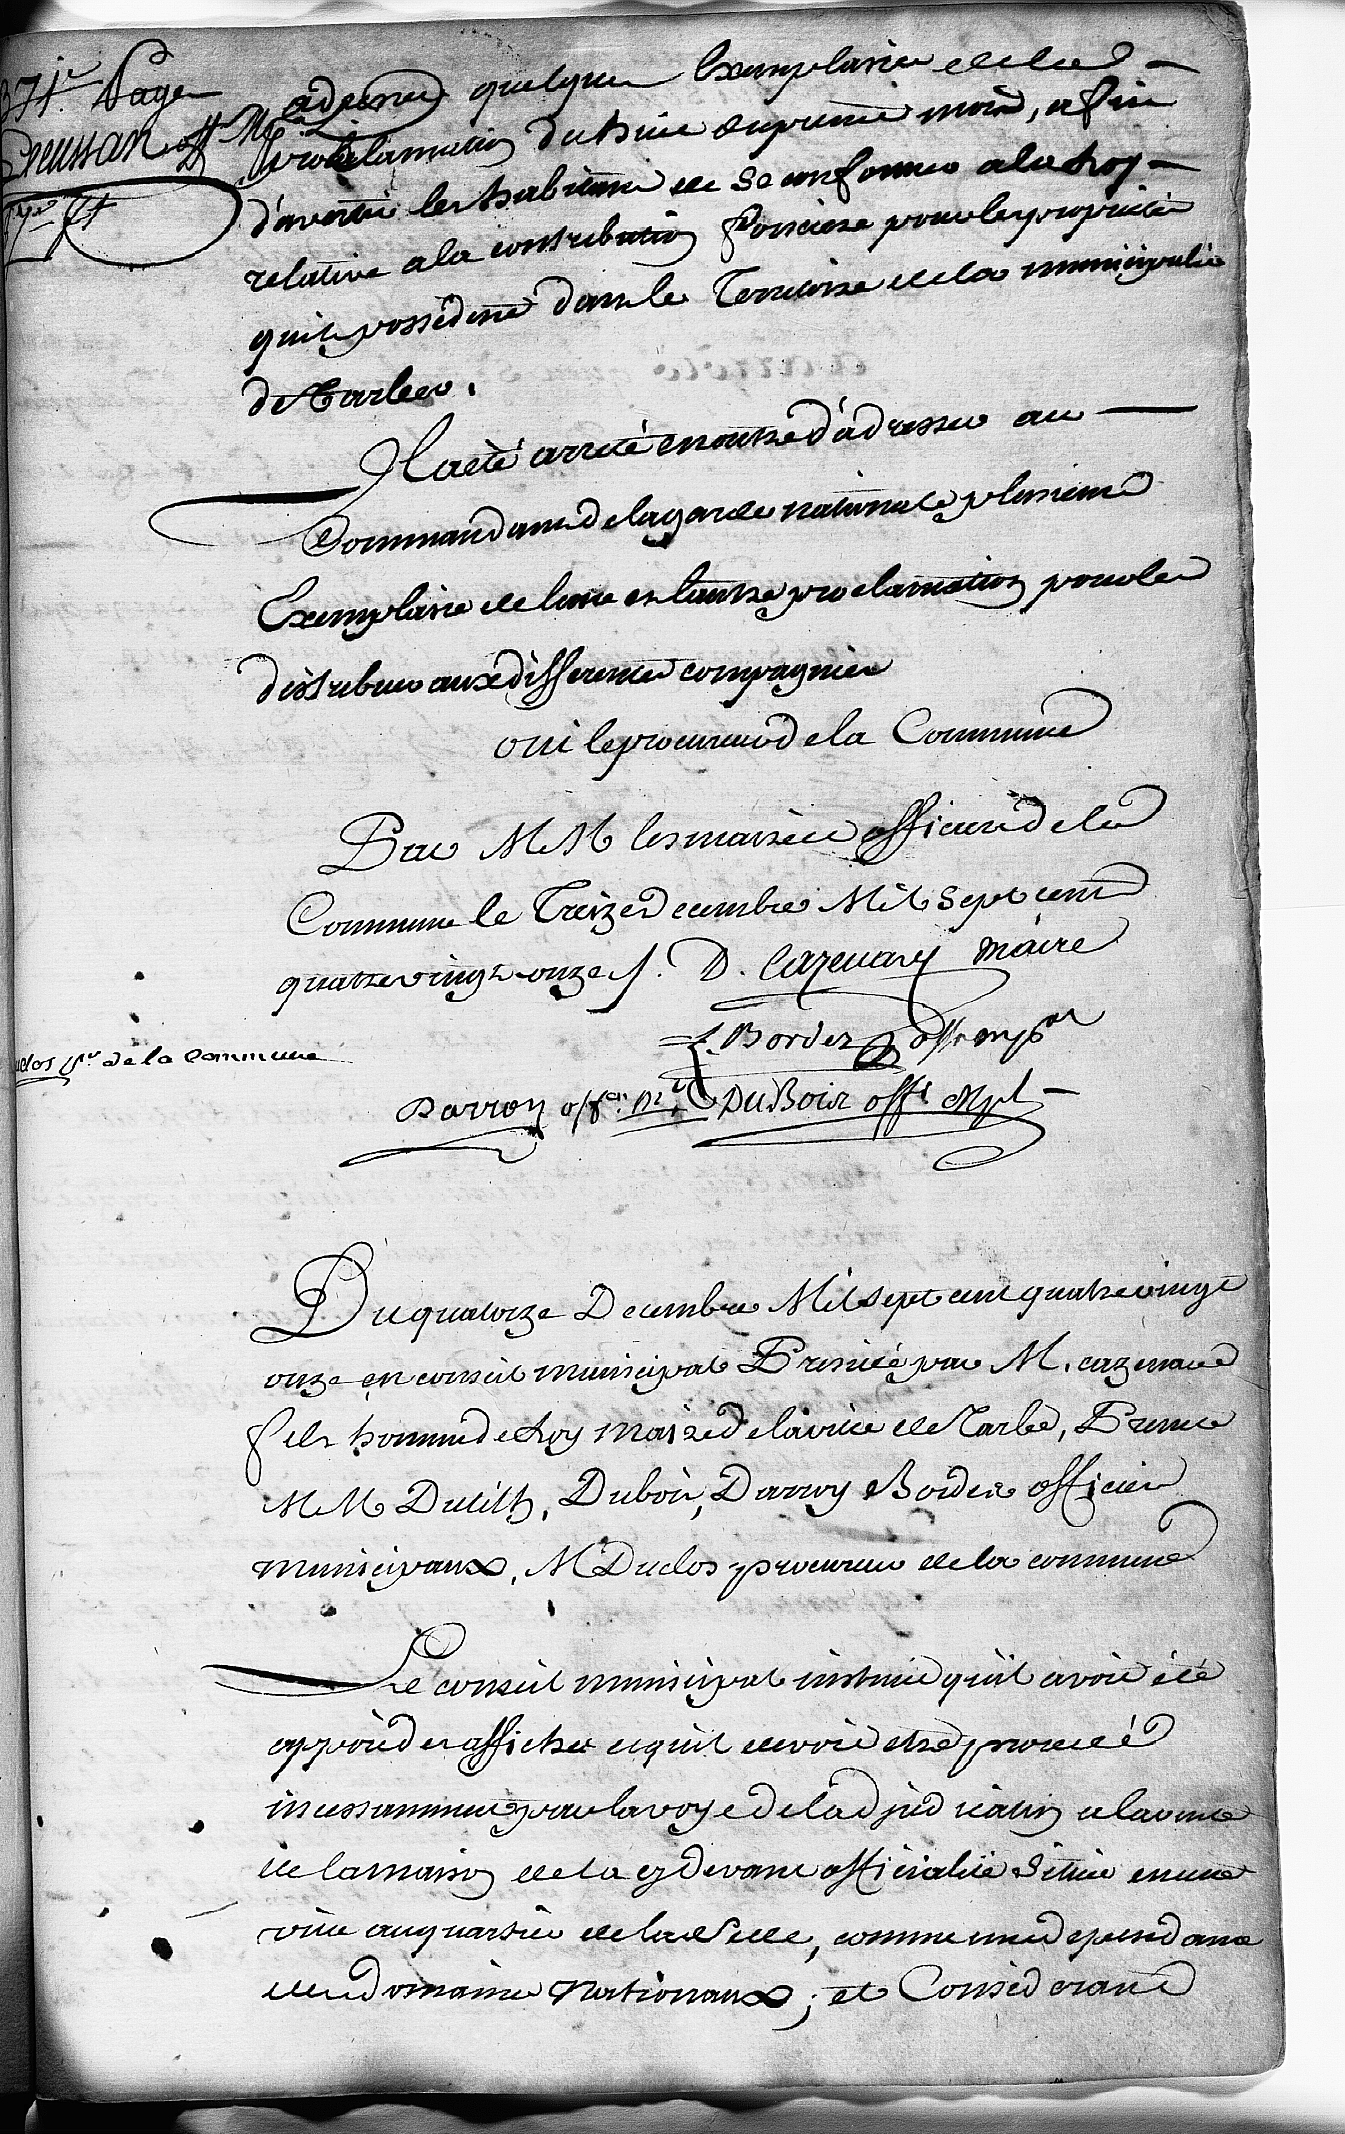 371e Page
adresser quelques Exemplaires de la
proclamation du huit du present mois, afin
d'avertir les habitans de se conformer a la Loy
relative a la contribution fonciere pour les proprietés
qu'ils possedent dans le Territoire de la municipalité
de Tarbes.
Il a eté arreté en outre d'adresser au
Commandant de la garde nationale plusieurs
Exemplaire de l'une et l'autre proclamation pour les
distribuer aux differentes compagnies
oui le procureur de la Commune
Par MM les maire et officiers de la
Commune le Treize decembre Mil Sept cent
quatre vingt onze /. D. Cazenave maire
Bordes off. mpal
Duclos pr. de la Commune
Darroy offer. Mal DuBoir offr Mpl
Du quatorze Decembre Mil Sept cent quatre vingt
onze en conseil municipal Presidé par M. cazenave
fils homme de Loy maire de la ville de Tarbe, Presens
MM Dutilh, Duboir, Darroy Bordes officiers
municipaux, M Duclos procureur de la commune
Le conseil municipal instruit quil avoit été
apposé des affiches et quil devoit etre procedé
incessamment par la voye de l'adjudication a la vente
de la maison de la cy devant officialité Située en cette
ville au quartier de la Sede, comme une dependance
des domaines Nationaux; et Considerant